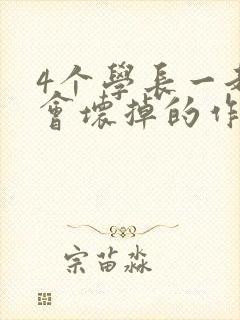 4个學長一
會壞掉的作
宗苗淼